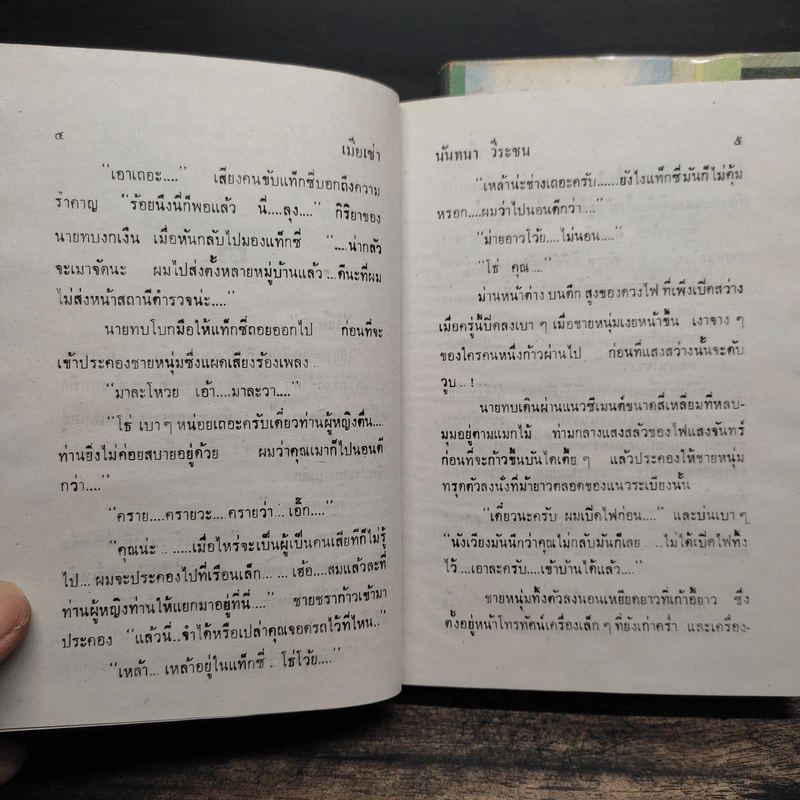 ๔ เมียเช่า
“เอาเถอะ....” เสียงคนขับแท็กซี่บอกถึงความ
รำคาญ “ร้อยนึงนี่ก็พอแล้ว นี่....ลุง....” กิริยาของ
นายทบงกเงิน เมื่อหันกลับไปมองแท็กซี่ “....น่ากลัว
จะเมาจัดนะ ผมไปส่งตั้งหลายหมู่บ้านแล้ว...ดีนะที่ผม
ไม่ส่งหน้าสถานีตำรวจน่ะ....”
นายทบโบกมือให้แท็กซี่ถอยออกไป ก่อนที่จะ
เข้าประคองชายหนุ่มซึ่งแผดเสียงร้องเพลง
“มาละโหวย เอ้า....มาละวา....”
“โธ่ เบา ๆ หน่อยเถอะครับเดี๋ยวท่านผู้หญิงตื่น....
ท่านยิ่งไม่ค่อยสบายอยู่ด้วย ผมว่าคุณเมาก็ไปนอนดี
กว่า....”
“คราย....ครายวะ.... ครายว่า... เอิ๊ก....”
“คุณน่ะ .. ......เมื่อไหร่จะเป็นผู้เป็นคนเสียทีก็ไม่รู้
ไป... ผมจะประคองไปที่เรือนเล็ก... ... เฮ้อ....สมแล้วละที่
ท่านผู้หญิงท่านให้แยกมาอยู่ที่นี่....” ชายชราก้าวเข้ามา
ประคอง “แล้วนี่..จำได้หรือเปล่าคุณจอดรถไว้ที่ไหน..”
“เหล้า... เหล้าอยู่ในแท็กซี่.. โธ่โว้ย....”
นันทนา วีระชน ๕
“เหล้าน่ะช่างเถอะครับ......ยังไงแท็กซี่มันก็ไม่คุ้ม
หรอก....ผมว่าไปนอนดีกว่า....”
“ม่ายอาวโว้ย....ไม่นอน....”
“โธ่ คุณ ...”
ม่านหน้าต่าง บนตึก สูงของดวงไฟ ที่เพิ่งเปิดสว่าง
เมื่อครู่นี้ปิดลงเบา ๆ เมื่อชายหนุ่มเงยหน้าขึ้น เงาจาง ๆ
ของใครคนหนึ่งก้าวผ่านไป ก่อนที่แสงสว่างนั้นจะดับ
วูบ...!
นายทบเดินผ่านแนวซีเมนต์ขนาดสี่เหลี่ยมที่หลบ-
มุมอยู่ตามแมกไม้ ท่ามกลางแสงสลัวของไฟแสงจันทร์
ก่อนที่จะก้าวขึ้นบันไดเตี้ย ๆ แล้วประคองให้ชายหนุ่ม
ทรุดตัวลงนั่งที่ม้ายาวตลอดของแนวระเบียงนั้น
“เดี๋ยวนะครับ ผมเปิดไฟก่อน....” และบ่นเบา ๆ
“นังเวียงมันนึกว่าคุณไม่กลับมันก็เลย ...ไม่ได้เปิดไฟทิ้ง
ไว้....เอาละครับ....เข้าบ้านได้แล้ว....”
ชายหนุ่มทิ้งตัวลงนอนเหยียดยาวที่เก้าอี้ยาว ซึ่ง
ตั้งอยู่หน้าโทรทัศน์เครื่องเล็ก ๆ ที่ยังเก่าคร่ำ และเครื่อง-